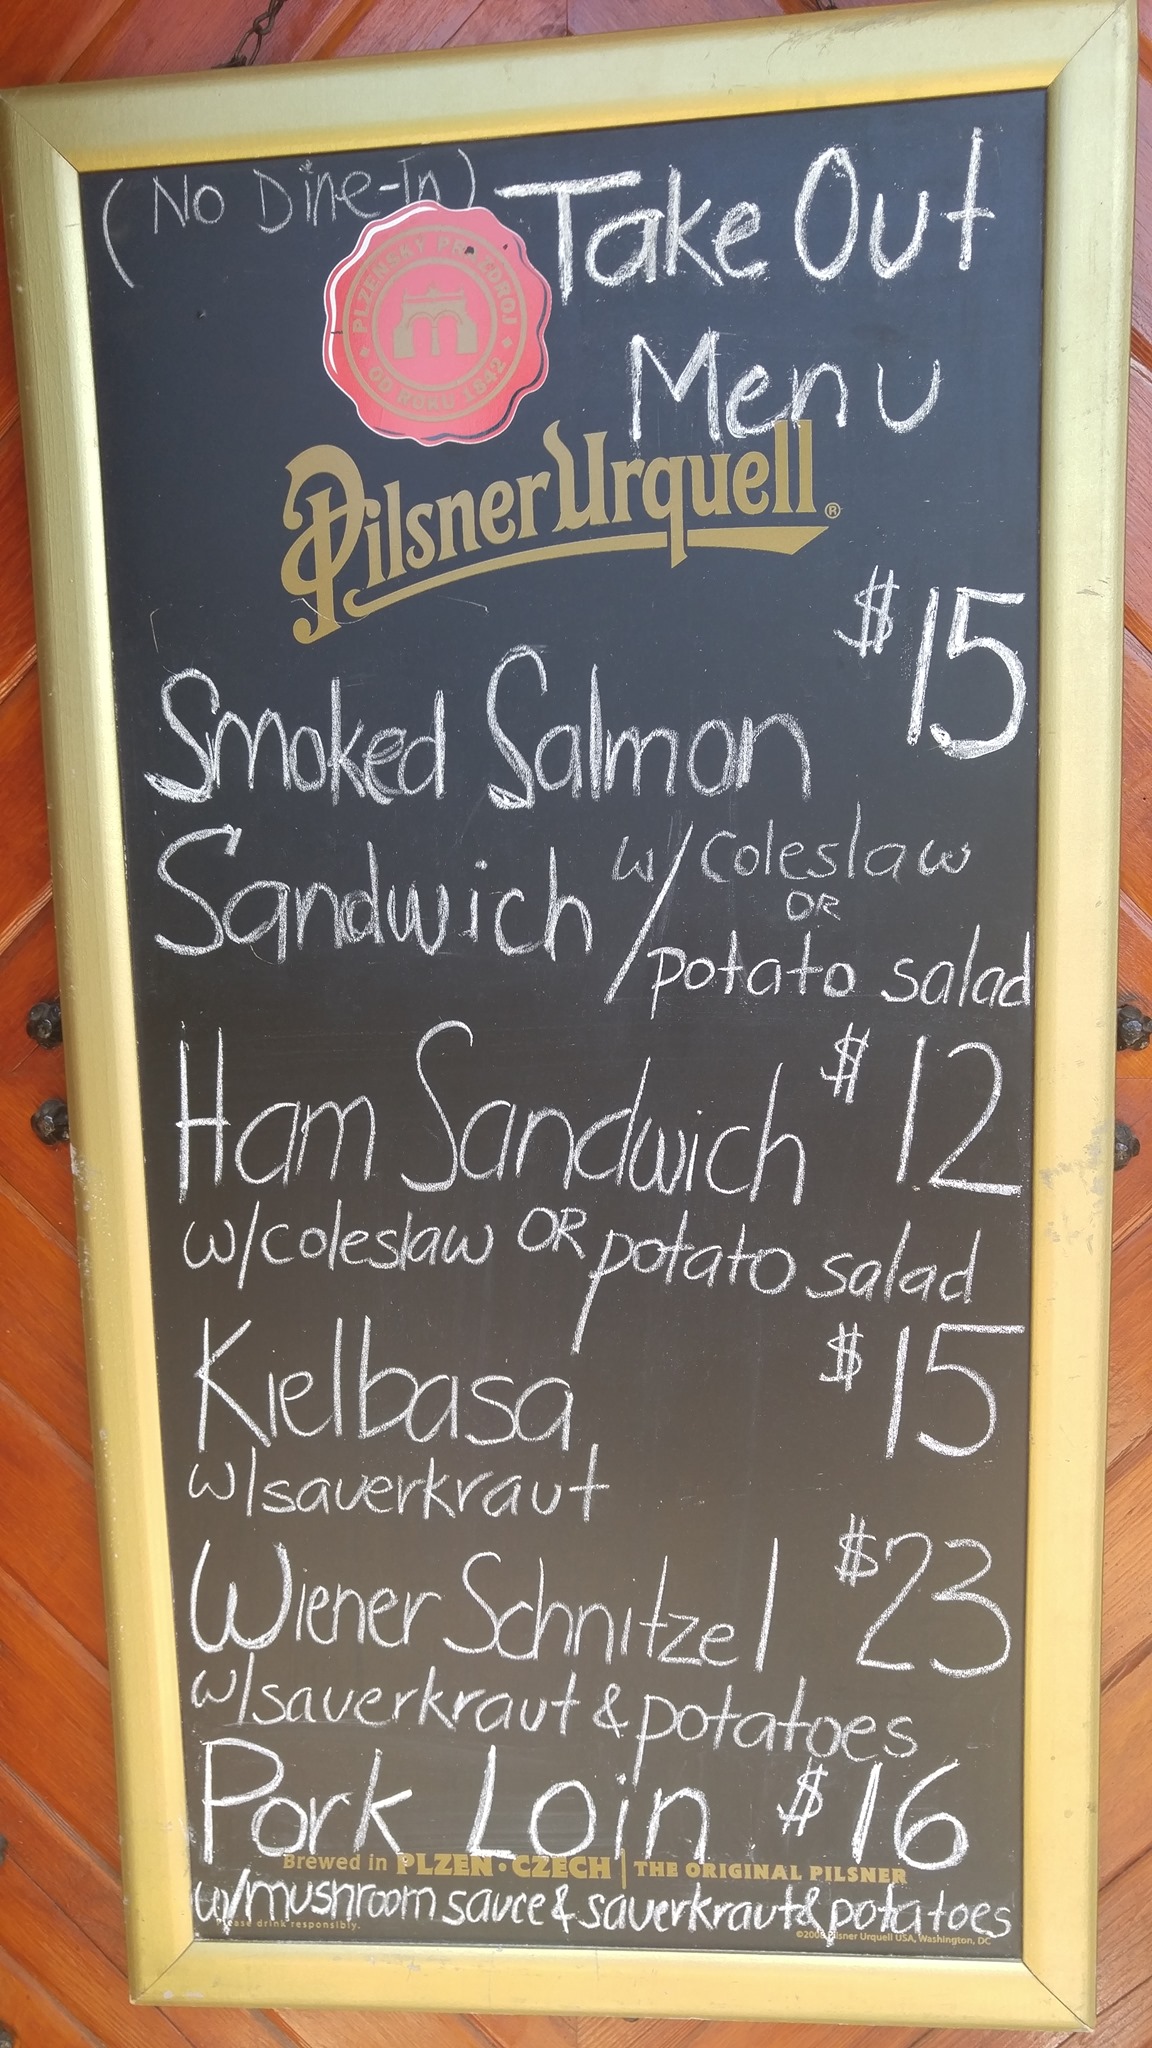 (No Dine-In)
Take Out
Menu
PLZEŇSKÝ PRAZDROJ
OD ROKU 1842
Pilsner Urquell®
$15
Smoked Salmon
Sandwich w/coleslaw
OR
potato salad
Ham Sandwich $12
w/coleslaw OR potato salad
Kielbasa $15
w/sauerkraut
Wiener Schnitzel $23
w/sauerkraut & potatoes
Pork Loin $16
Brewed in PLZEN · CZECH | THE ORIGINAL PILSNER
w/mushroom sauce & sauerkraut & potatoes
Please drink responsibly.
Pilsner Urquell USA, Washington, DC